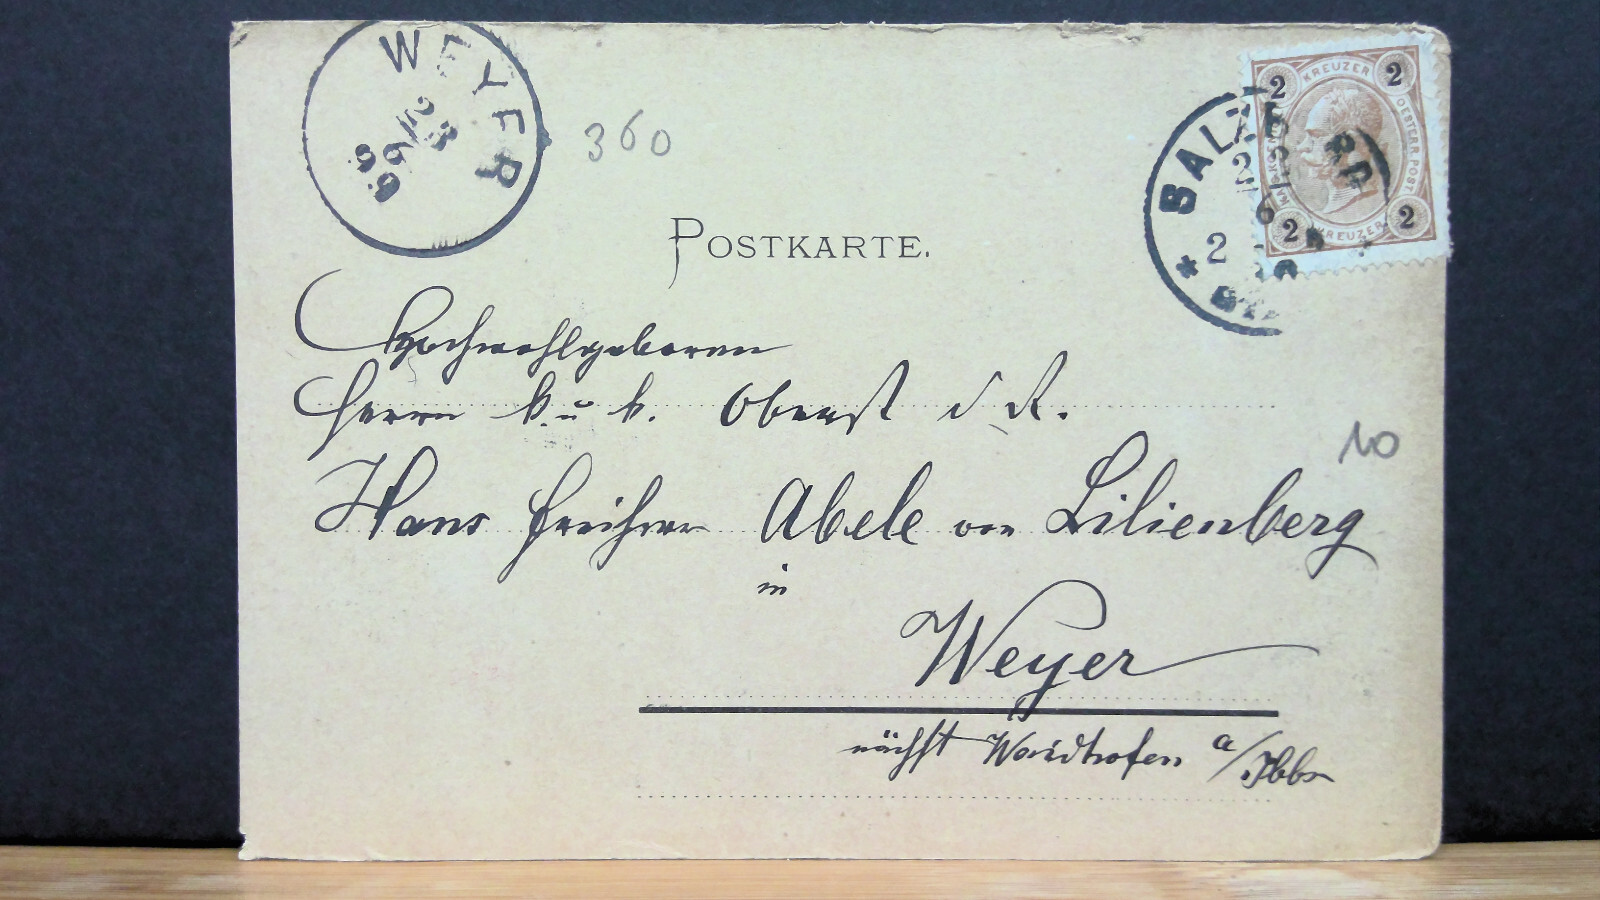 WEYER
23
6
99
360
KREUZER
2 2
OESTERR. POST
KREUZER
2 2
BALZE RS
2
POSTKARTE.
Hochwohlgeboren
Herrn k. u. k. Oberst d. R.
Hans Freiherrn Abele von Lilienberg
10
in
Weyer
nächst Waidhofen a/Ybbs